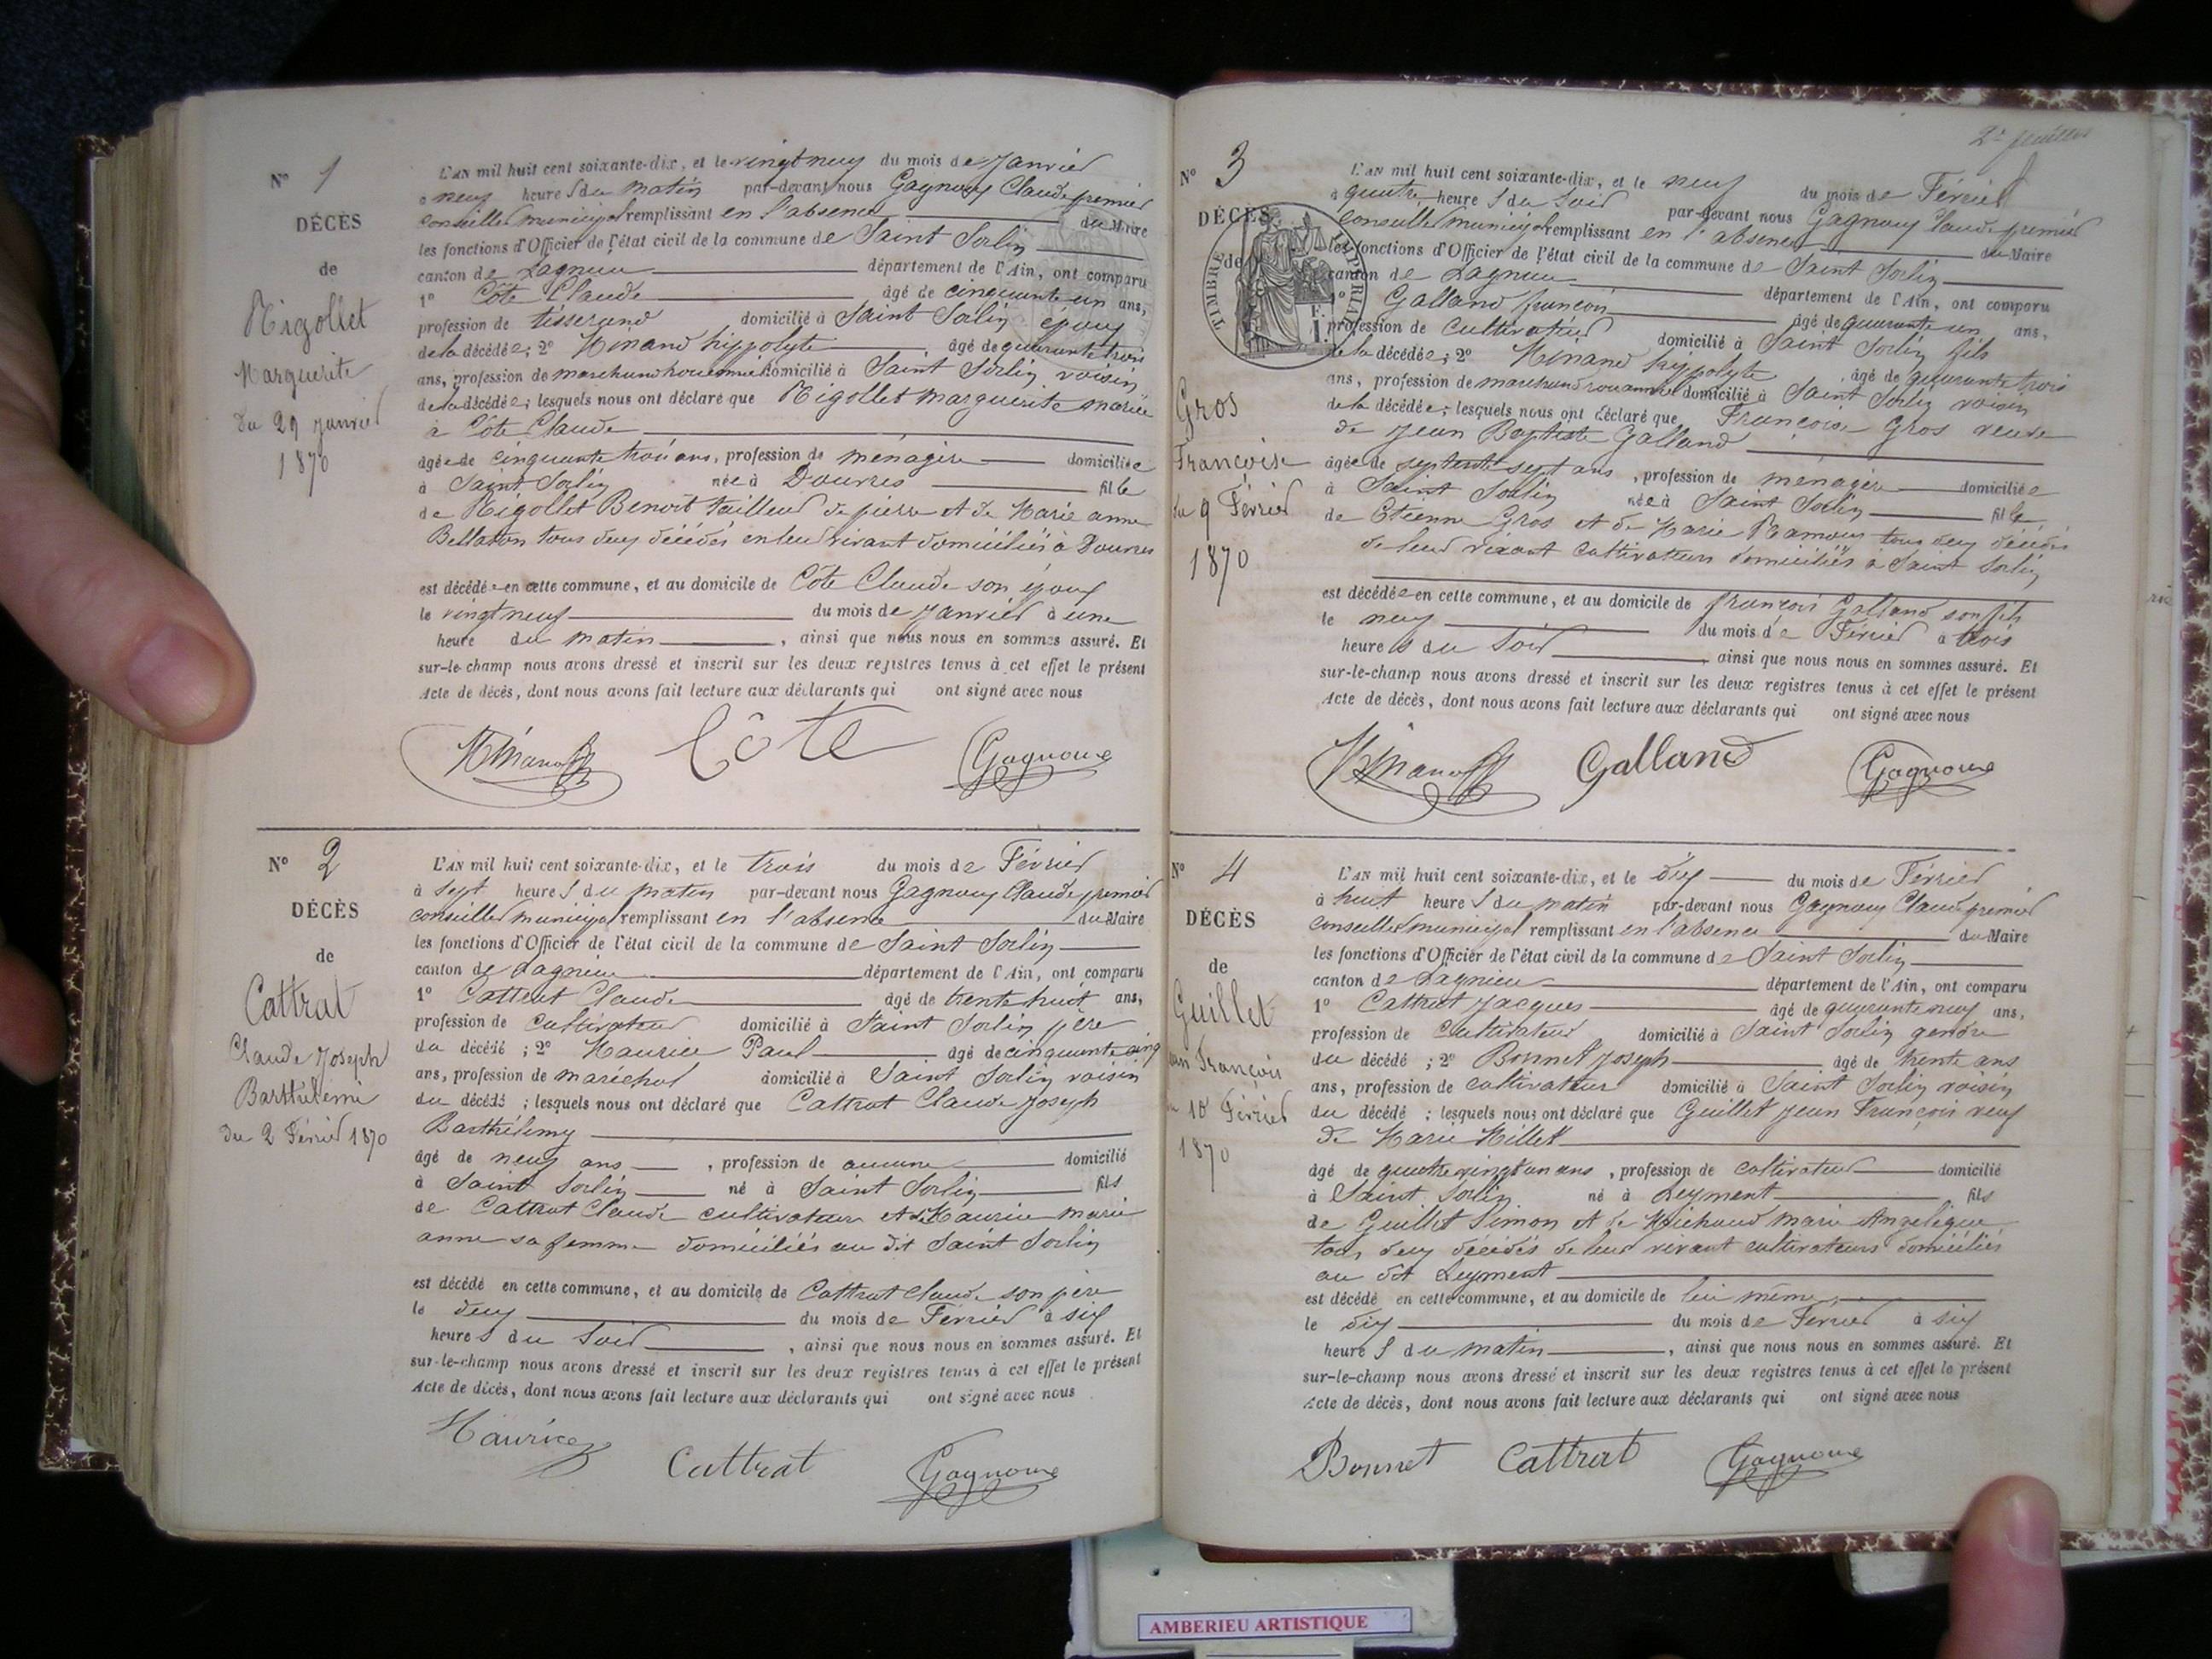 N° 1
DÉCÈS
de
Rigollet
Marguerite
Du 29 Janvier
1870
L'AN mil huit cent soixante-dix, et le vingt neuf du mois de Janvier
à neuf heures du matin par-devant nous Gagnoux Claude premier
conseiller municipal remplissant en l'absence du Maire
les fonctions d'Officier de l'état civil de la commune de Saint Sorlin
canton de Lagnieu département de l'Ain, ont comparu
1° Côte Claude âgé de cinquante un ans,
profession de tisserand domicilié à Saint Sorlin époux
de la décédée; 2° Menand hippolyte âgé de quarante trois
ans, profession de marchand domicilié à Saint Sorlin voisin
de la décédée; lesquels nous ont déclaré que Rigollet marguerite mariée
à Côte Claude
âgée de cinquante trois ans, profession de ménagère domiciliée
à Saint Sorlin née à Douvres fille
de Rigollet Benoit tailleur de pierre et de Marie anne
Bellaton tous deux décédés en leur vivant domiciliés à Douvres
est décédée en cette commune, et au domicile de Côte Claude son époux
le vingt neuf du mois de Janvier à une
heure du matin, ainsi que nous nous en sommes assuré. Et
sur-le-champ nous avons dressé et inscrit sur les deux registres tenus à cet effet le présent
Acte de décès, dont nous avons fait lecture aux déclarants qui ont signé avec nous
Hmand Côte Gagnoux
N° 2
DÉCÈS
de
Cattrat
Claude Joseph
Barthélemi
Du 2 Février 1870
L'AN mil huit cent soixante-dix, et le trois du mois de Février
à sept heures du matin par-devant nous Gagnoux Claude premier
conseiller municipal remplissant en l'absence du Maire
les fonctions d'Officier de l'état civil de la commune de Saint Sorlin
canton de Lagnieu département de l'Ain, ont comparu
1° Cattrat Claude âgé de trente huit ans,
profession de cultivateur domicilié à Saint Sorlin père
du décédé ; 2° Maurice Paul âgé de cinquante cinq
ans, profession de maréchal domicilié à Saint Sorlin voisin
du décédé ; lesquels nous ont déclaré que Cattrat Claude Joseph
Barthélemy
âgé de neuf ans, profession de aucune domicilié
à Saint Sorlin né à Saint Sorlin fils
de Cattrat Claude cultivateur et de Maurice marie
anne sa femme domiciliés au dit Saint Sorlin
est décédé en cette commune, et au domicile de Cattrat Claude son père
le deux du mois de Février à six
heures du soir, ainsi que nous nous en sommes assuré. Et
sur-le-champ nous avons dressé et inscrit sur les deux registres tenus à cet effet le présent
Acte de décès, dont nous avons fait lecture aux déclarants qui ont signé avec nous
Maurice Cattrat Gagnoux
2e feuillet
N° 3
DÉCÈS
de
TIMBRE IMPERIAL
Gros
Françoise
du 9 Février
1870
L'AN mil huit cent soixante-dix, et le neuf du mois de Février
à quatre heures du soir par-devant nous Gagnoux Claude premier
conseiller municipal remplissant en l'absence du Maire
les fonctions d'Officier de l'état civil de la commune de Saint Sorlin
canton de Lagnieu département de l'Ain, ont comparu
1° Galland françois âgé de quarante un ans,
profession de cultivateur domicilié à Saint Sorlin fils
de la décédée; 2° Menand hippolyte âgé de quarante trois
ans, profession de marchand domicilié à Saint Sorlin voisin
de la décédée; lesquels nous ont déclaré que Françoise Gros veuve
de Jean Baptiste Galland
âgée de septente sept ans, profession de ménagère domiciliée
à Saint Sorlin née à Saint Sorlin fille
de Etienne Gros et de Marie Ramoux tous deux décédés
de leur vivant cultivateurs domiciliés à Saint Sorlin
est décédée en cette commune, et au domicile de françois Galland son fils
le neuf du mois de Février à trois
heures du soir, ainsi que nous nous en sommes assuré. Et
sur-le-champ nous avons dressé et inscrit sur les deux registres tenus à cet effet le présent
Acte de décès, dont nous avons fait lecture aux déclarants qui ont signé avec nous
Hmand Galland Gagnoux
N° 4
DÉCÈS
de
Guillet
an François
10 Février
1870
L'AN mil huit cent soixante-dix, et le dix du mois de Février
à huit heures du matin par-devant nous Gagnoux Claude premier
conseiller municipal remplissant en l'absence du Maire
les fonctions d'Officier de l'état civil de la commune de Saint Sorlin
canton de Lagnieu département de l'Ain, ont comparu
1° Cattrat Jacques âgé de quarante neuf ans,
profession de cultivateur domicilié à Saint Sorlin gendre
du décédé ; 2° Bonnet Joseph âgé de trente ans
ans, profession de cultivateur domicilié à Saint Sorlin voisin
du décédé ; lesquels nous ont déclaré que Guillet Jean François veuf
de Marie Millet
âgé de quatre vingt un ans, profession de cultivateur domicilié
à Saint Sorlin né à Leyment fils
de Guillet Simon et de Michaud marie Angelique
tous deux décédés de leur vivant cultivateurs domiciliés
au dit Leyment
est décédé en cette commune, et au domicile de lui même
le dix du mois de Février à six
heures du matin, ainsi que nous nous en sommes assuré. Et
sur-le-champ nous avons dressé et inscrit sur les deux registres tenus à cet effet le présent
Acte de décès, dont nous avons fait lecture aux déclarants qui ont signé avec nous
Bonnet Cattrat Gagnoux
AMBERIEU ARTISTIQUE